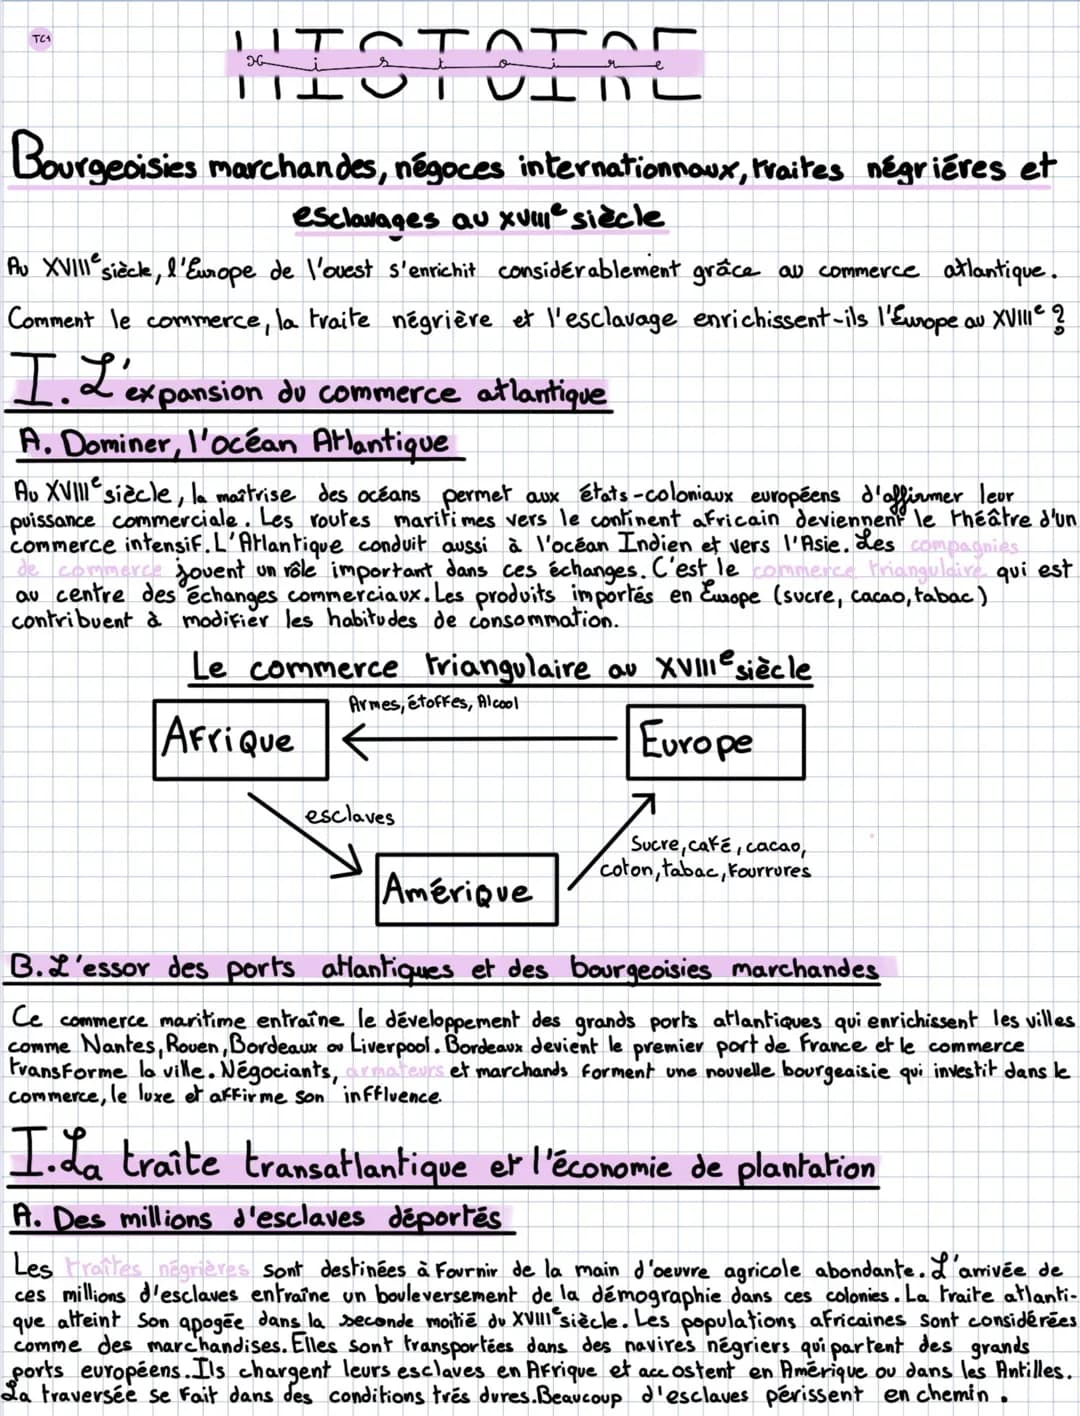 TC1
HISTOIRE
Histoire
Bourgeoisies marchandes, négoces internationnaux, traites négriéres et
esclavages au XVIIIe siècle
Au XVIIIe siècle, l'Europe de l'ouest s'enrichit considérablement grâce au commerce atlantique.
Comment le commerce, la traite négrière et l'esclavage enrichissent-ils l'Europe au XVIIIe ?
I. L'expansion du commerce atlantique
A. Dominer, l'océan Atlantique
Au XVIIIe siècle, la maîtrise des océans permet aux états-coloniaux européens d'affirmer leur
puissance commerciale. Les routes maritimes vers le continent africain deviennent le théâtre d'un
commerce intensif. L'Atlantique conduit aussi à l'océan Indien et vers l'Asie. Les compagnies
de commerce jouent un rôle important dans ces échanges. C'est le commerce triangulaire qui est
au centre des échanges commerciaux. Les produits importés en Europe (sucre, cacao, tabac)
contribuent à modifier les habitudes de consommation.
Le commerce triangulaire au XVIIIe siècle
Armes, étoffes, Alcool
Afrique
Europe
esclaves
Sucre, café, cacao,
coton, tabac, fourrures
Amérique
B. L'essor des ports atlantiques et des bourgeoisies marchandes
Ce commerce maritime entraîne le développement des grands ports atlantiques qui enrichissent les villes
comme Nantes, Rouen, Bordeaux ou Liverpool. Bordeaux devient le premier port de France et le commerce
transforme la ville. Négociants, armateurs et marchands forment une nouvelle bourgeaisie qui investit dans le
commerce, le luxe et affirme son inffluence.
I. La traîte transatlantique et l'économie de plantation
A. Des millions d'esclaves déportés
Les traîtes négrières sont destinées à fournir de la main d'oeuvre agricole abondante. L'arrivée de
ces millions d'esclaves entraîne un bouleversement de la démographie dans ces colonies. La traite atlanti-
que atteint son apogée dans la seconde moitié du XVIIIe siècle. Les populations africaines sont considérées
comme des marchandises. Elles sont transportées dans des navires négriers qui partent des grands
ports européens. Ils chargent leurs esclaves en Afrique et accostent en Amérique ou dans les Antilles.
La traversée se fait dans des conditions trés dures. Beaucoup d'esclaves périssent en chemin.